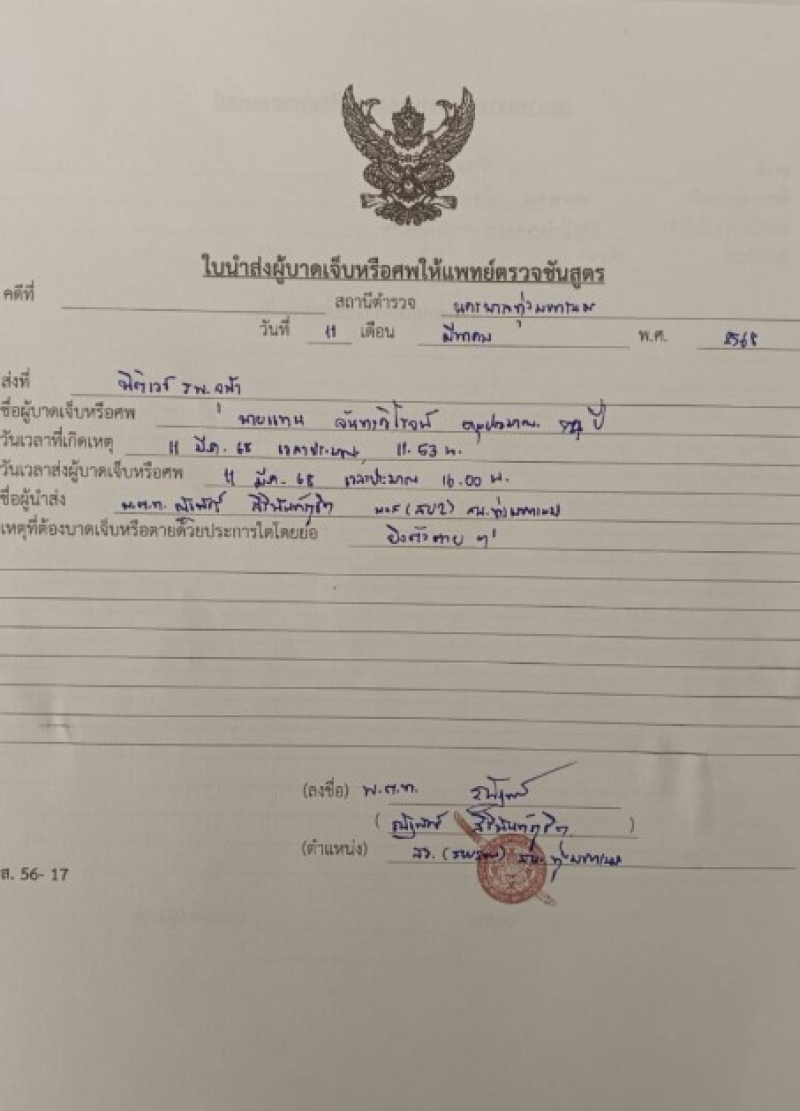 ใบนำส่งผู้บาดเจ็บหรือศพให้แพทย์ตรวจชันสูตร
คดีที่ สถานีตำรวจ นครบาลทุ่งมหาเมฆ
วันที่ 11 เดือน มีนาคม พ.ศ. 2568
ส่งที่ นิติเวช รพ.จุฬา
ชื่อผู้บาดเจ็บหรือศพ นายแทน อายุประมาณ ปี
วันเวลาที่เกิดเหตุ 11 มี.ค. 68 เวลาประมาณ 11.53 น.
วันเวลาส่งผู้บาดเจ็บหรือศพ 11 มี.ค. 68 เวลาประมาณ 16.00 น.
ชื่อผู้นำส่ง พ.ต.ท. สน.ทุ่งมหาเมฆ
เหตุที่ต้องบาดเจ็บหรือตายด้วยประการใดโดยย่อ ยิงตัวตาย
(ลงชื่อ) พ.ต.ท.
( )
(ตำแหน่ง) สว. สน.ทุ่งมหาเมฆ
ส. 56- 17